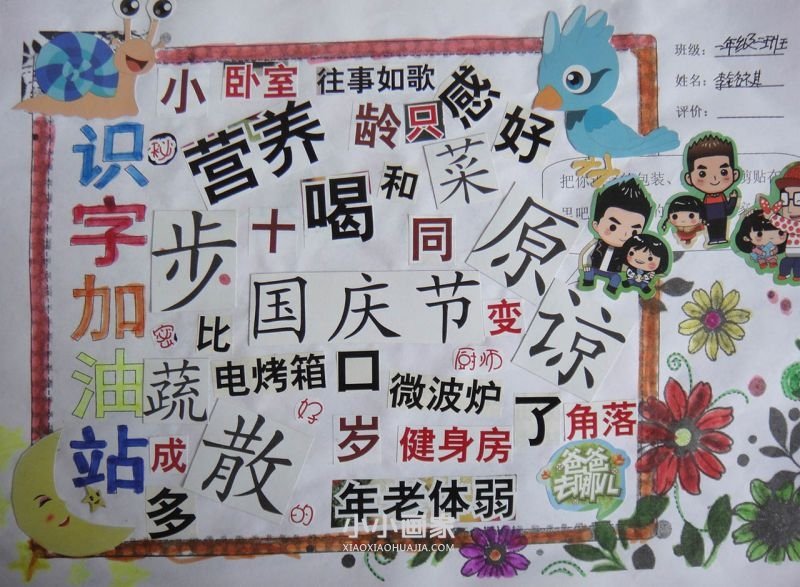 班级: 二年级二班
姓名:
评价:
把你 包装、 剪贴在
里吧
识字加油站
小 卧室 往事如歌
营养 龄 只 感 好
秘
喝 和 菜
步 十 同 原谅
国庆节 变
密 比
厨师
蔬 电烤箱 口 微波炉
好
了 角落
成 散 岁 健身房
爸爸去哪儿
多 的 年老体弱
小小画家
XIAOXIAOHUAJIA.COM